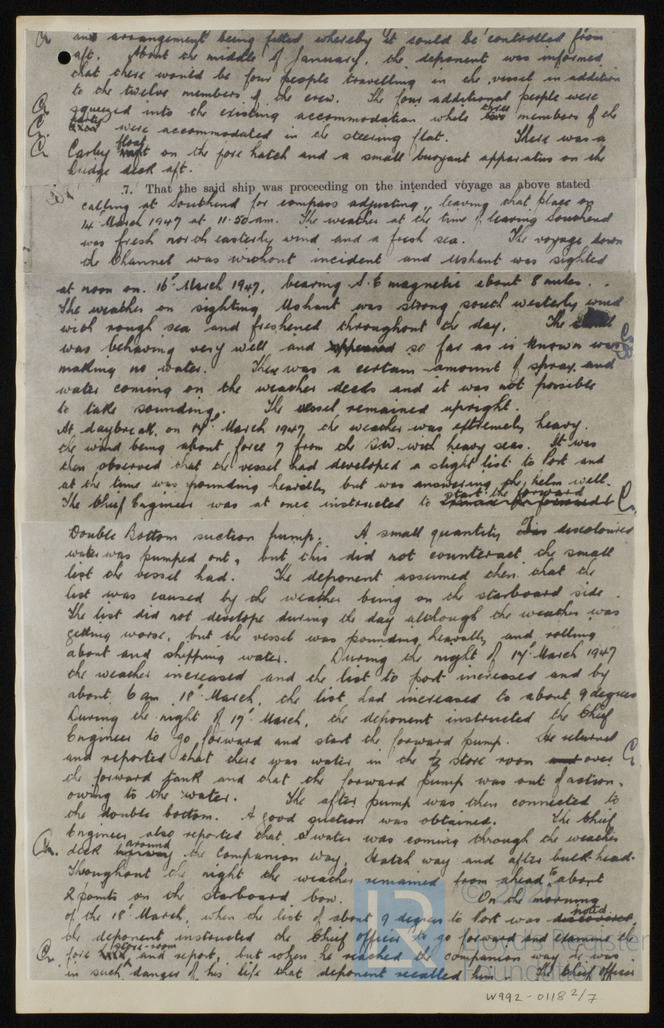 and arrangement being fitted whereby it could be controlled from
aft. About the middle of January, the deponent was informed
that there would be four people travelling in the vessel in addition
to the twelve members of the crew. The four additional people were
squeezed into the existing accommodation while three members of the
party were accommodated in the steering flat. There was a
Carley float on the fore hatch and a small buoyant apparatus on the
bridge deck aft.
7. That the said ship was proceeding on the intended voyage as above stated
calling at Southend for compass adjusting, leaving that place on
14 March 1947 at 11.50 am. The weather at the time of leaving Southend
was fresh north easterly wind and a fresh sea. The voyage down
the Channel was without incident and Ushant was sighted
at noon on 16th March 1947, bearing S.E magnetic about 8 miles.
The weather on sighting Ushant was strong south westerly wind
with rough sea and freshened throughout the day. The
was behaving very well and so far as is known was
making no water. There was a certain amount of spray and
water coming on the weather decks and it was not possible
to take soundings. The vessel remained upright.
At daybreak on 17th March 1947 the weather was extremely heavy.
the wind being about force 7 from the S.W. with heavy seas. It was
then observed that the vessel had developed a slight list to Port and
at the time was pounding heavily but was answering the helm well.
The Chief Engineer was at once instructed to start the forward
Double Bottom suction pump. A small quantity discoloured
water was pumped out, but this did not counteract the small
list the vessel had. The deponent assumed then that the
list was caused by the weather being on the starboard side.
The list did not develope during the day although the weather was
getting worse, but the vessel was pounding heavily and rolling
about and shipping water. During the night of 17th March 1947
the weather increased and the list to port increased and by
about 6 am 18th March, the list had increased to about 9 degrees
During the night of 17th March, the deponent instructed the Chief
Engineer to go forward and start the forward pump. He returned
and reported that there was water in the store room over
the forward tank and that the forward pump was out of action.
owing to the water. The after pump was then connected to
the double bottom. A good suction was obtained. The Chief
Engineer also reported that water was coming through the weather
deck around the companion way, Hatch way and after bulkhead.
Throughout the night the weather remained from ahead to about
2 points on the starboard bow. On the morning
of the 18th March, when the list of about 9 degrees to Port was noted,
the deponent instructed the Chief officer to go forward and examine the
fore store-room and report, but when he reached the companion way he was
in such danger of his life that deponent recalled him. The Chief officer
© 2020
Lloyd's Register
Foundation
W992-0118 2/7